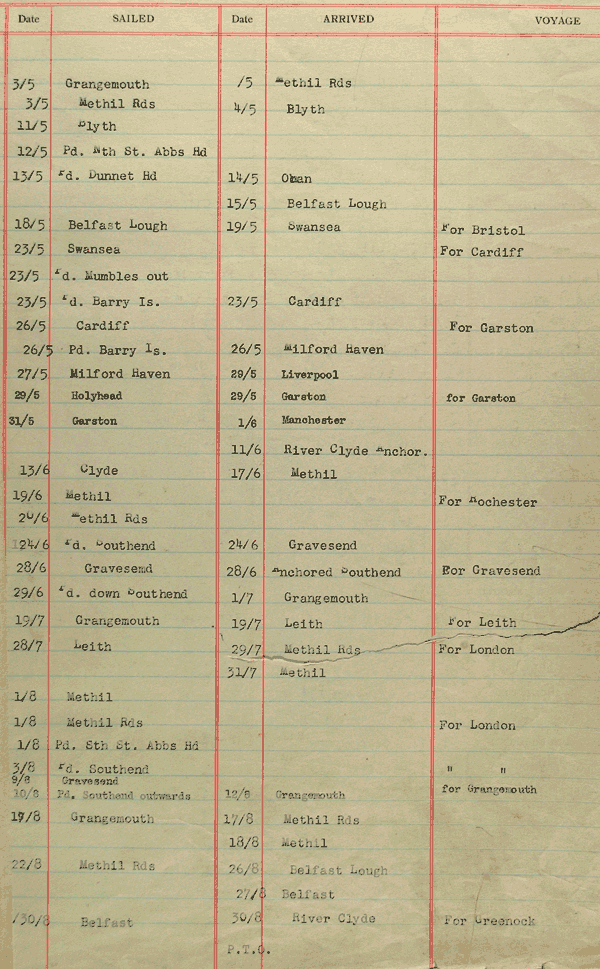 Date SAILED Date ARRIVED VOYAGE
3/5 Grangemouth /5 Methil Rds
3/5 Methil Rds 4/5 Blyth
11/5 Blyth
12/5 Pd. Nth St. Abbs Hd
13/5 Pd. Dunnet Hd 14/5 Oban
15/5 Belfast Lough
18/5 Belfast Lough 19/5 Swansea For Bristol
23/5 Swansea For Cardiff
23/5 Pd. Mumbles out
23/5 Pd. Barry Is. 23/5 Cardiff
26/5 Cardiff For Garston
26/5 Pd. Barry Is. 26/5 Milford Haven
27/5 Milford Haven 29/5 Liverpool
29/5 Holyhead 29/5 Garston for Garston
31/5 Garston 1/6 Manchester
11/6 River Clyde Anchor.
13/6 Clyde 17/6 Methil
19/6 Methil For Rochester
20/6 Methil Rds
24/6 Pd. Southend 24/6 Gravesend
28/6 Gravesemd 28/6 Anchored Southend For Gravesend
29/6 Pd. down Southend 1/7 Grangemouth
19/7 Grangemouth 19/7 Leith For Leith
28/7 Leith 29/7 Methil Rds For London
31/7 Methil
1/8 Methil
1/8 Methil Rds For London
1/8 Pd. Sth St. Abbs Hd
3/8 Pd. Southend " "
9/8 Gravesend
10/8 Pd. Southend outwards 12/8 Grangemouth for Grangemouth
17/8 Grangemouth 17/8 Methil Rds
18/8 Methil
22/8 Methil Rds 26/8 Belfast Lough
27/8 Belfast
/30/8 Belfast 30/8 River Clyde For Greenock
P.T.O.